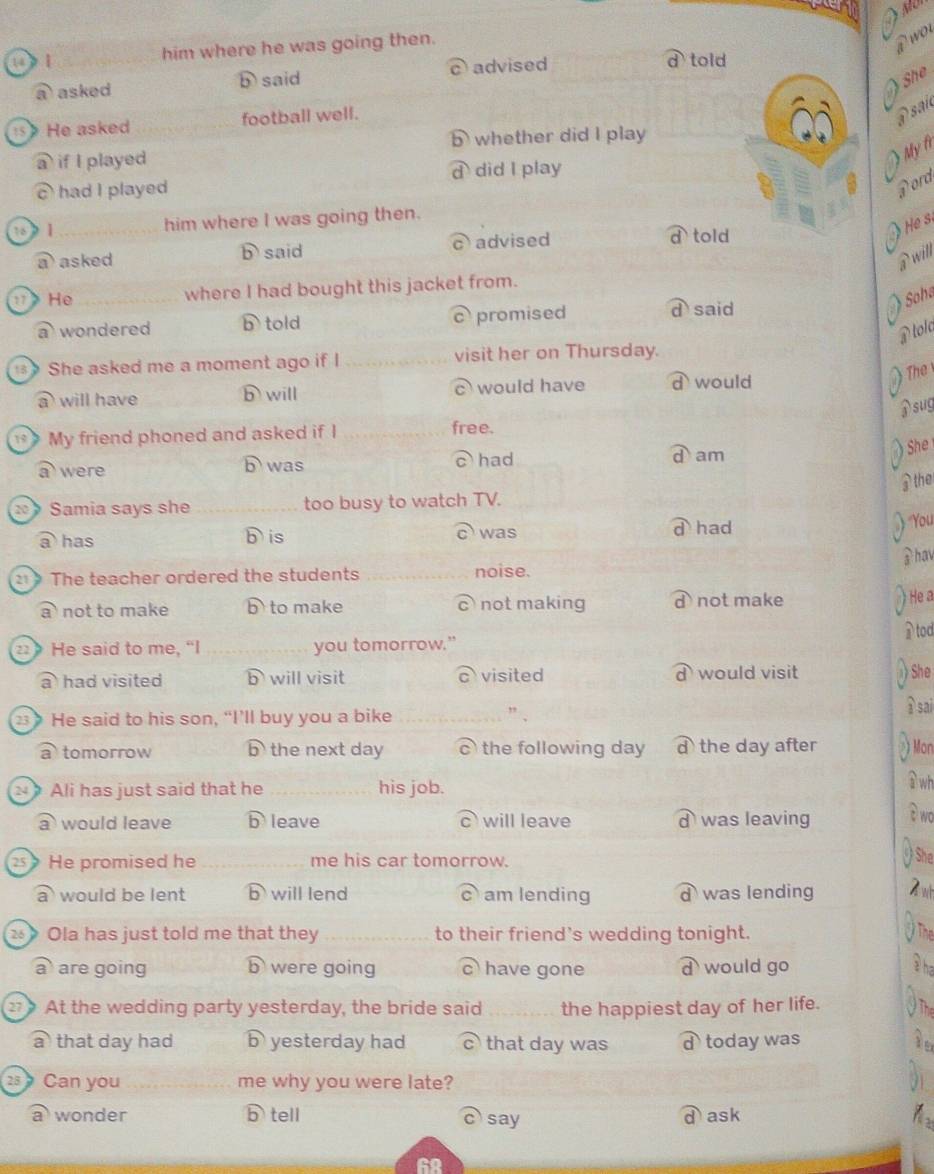 14 I ............ him where he was going then.
a asked b said c advised d told
15 He asked ............ football well.
a if I played b whether did I play
c had I played d did I play
16 I ............ him where I was going then.
a asked b said c advised d told
17 He ............ where I had bought this jacket from.
a wondered b told c promised d said
18 She asked me a moment ago if I ............ visit her on Thursday.
a will have b will c would have d would
19 My friend phoned and asked if I ............ free.
a were b was c had d am
20 Samia says she ............ too busy to watch TV.
a has b is c was d had
21 The teacher ordered the students ............ noise.
a not to make b to make c not making d not make
22 He said to me, “I ............ you tomorrow.”
a had visited b will visit c visited d would visit
23 He said to his son, “I’ll buy you a bike ............ ” .
a tomorrow b the next day c the following day d the day after
24 Ali has just said that he ............ his job.
a would leave b leave c will leave d was leaving
25 He promised he ............ me his car tomorrow.
a would be lent b will lend c am lending d was lending
26 Ola has just told me that they ............ to their friend’s wedding tonight.
a are going b were going c have gone d would go
27 At the wedding party yesterday, the bride said ......... the happiest day of her life.
a that day had b yesterday had c that day was d today was
28 Can you ............ me why you were late?
a wonder b tell c say d ask
68
She
My fr
He s
a will
Soha
a told
The
a sug
She
a the
"You
a hav
He a
a tod
She
a sai
Mon
a wh
c wo
She
a wh
The
a ha
The